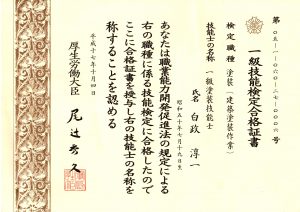 第〇五一-〇六〇-二七-〇〇〇六号
一級技能検定合格証書
検定職種 塗装（建築塗装作業）
技能士の名称 一級塗装技能士
氏名 白政淳一
昭和五十年七月十九日生
あなたは職業能力開発促進法の規定による
右の職種に係る技能検定に合格したので
ここに合格証書を授与し右の技能士の名称を
称することを認める
平成十七年十月四日
厚生労働大臣 尾辻秀久